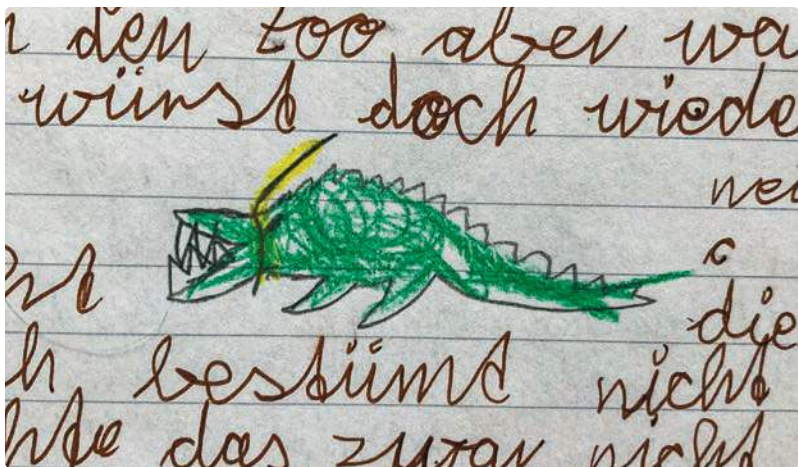 n den too aber wa
würst doch wiede
nei
st
die
h bestümt nicht
hte das zwar nicht